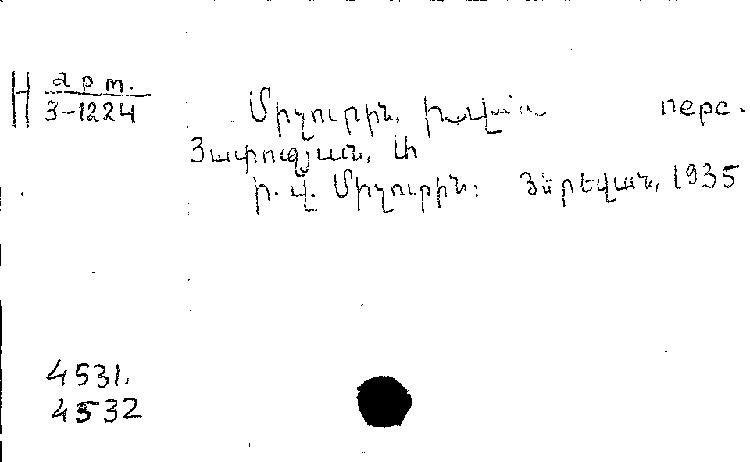 H арт.
3-1224
Միչուրին, Իվան перс.
Յափուջյան, Մ
Ի. Վ. Միչուրին: Յերեվան, 1935
4531.
4532